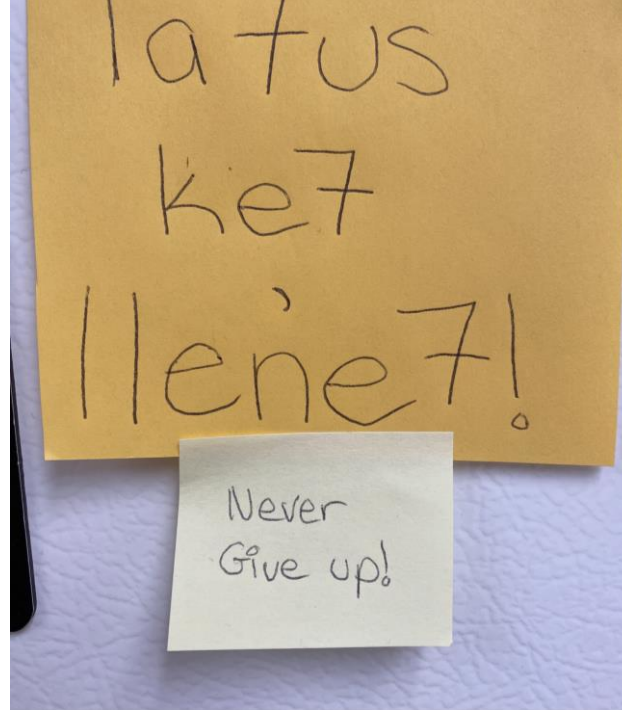 Tatus
ke7
lleṅe7!
Never
Give up!